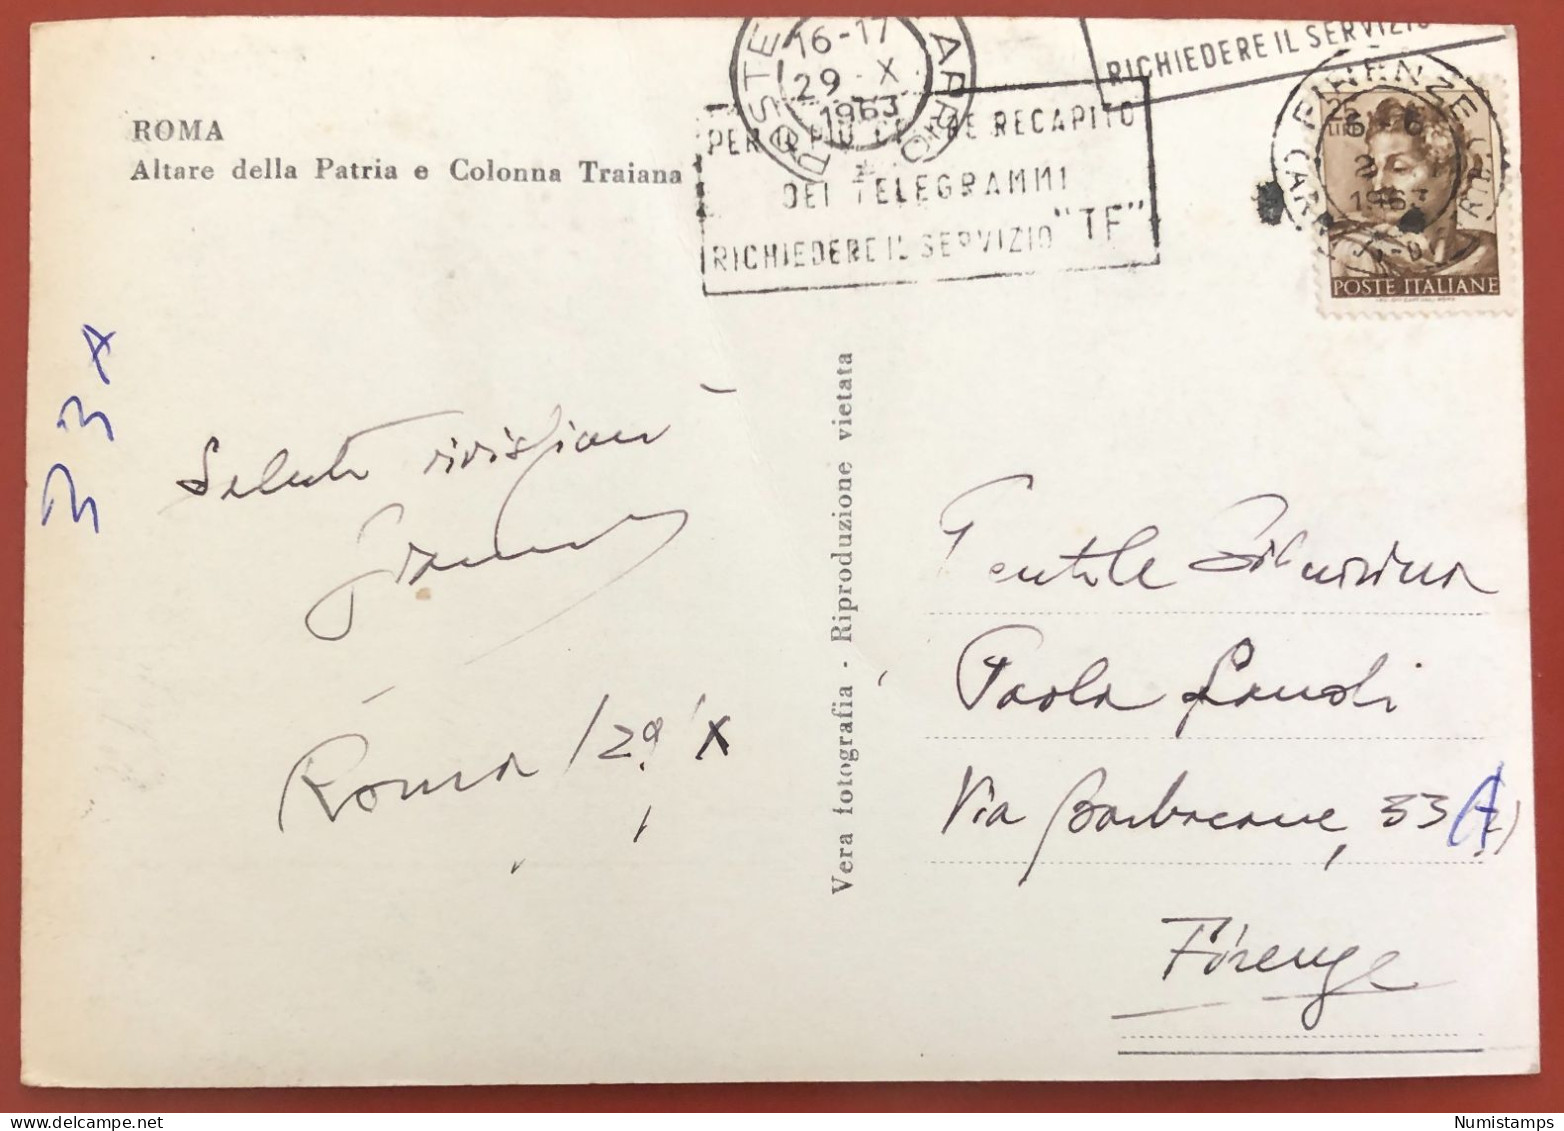 ROMA
Altare della Patria e Colonna Traiana
POSTE
16-17
29 X
1963
ARRIVO
PER IL PIÙ RECAPITO
DEI TELEGRAMMI
RICHIEDERE IL SERVIZIO "TF"
RICHIEDERE IL SERVIZIO
FIRENZE
1963
25
LIRE
POSTE ITALIANE
33A
Saluti
Roma / 29 X
Vera fotografia - Riproduzione vietata
Gentile Signorina
Paola
Via Barbacane, 33 A
Firenze
Numistamps